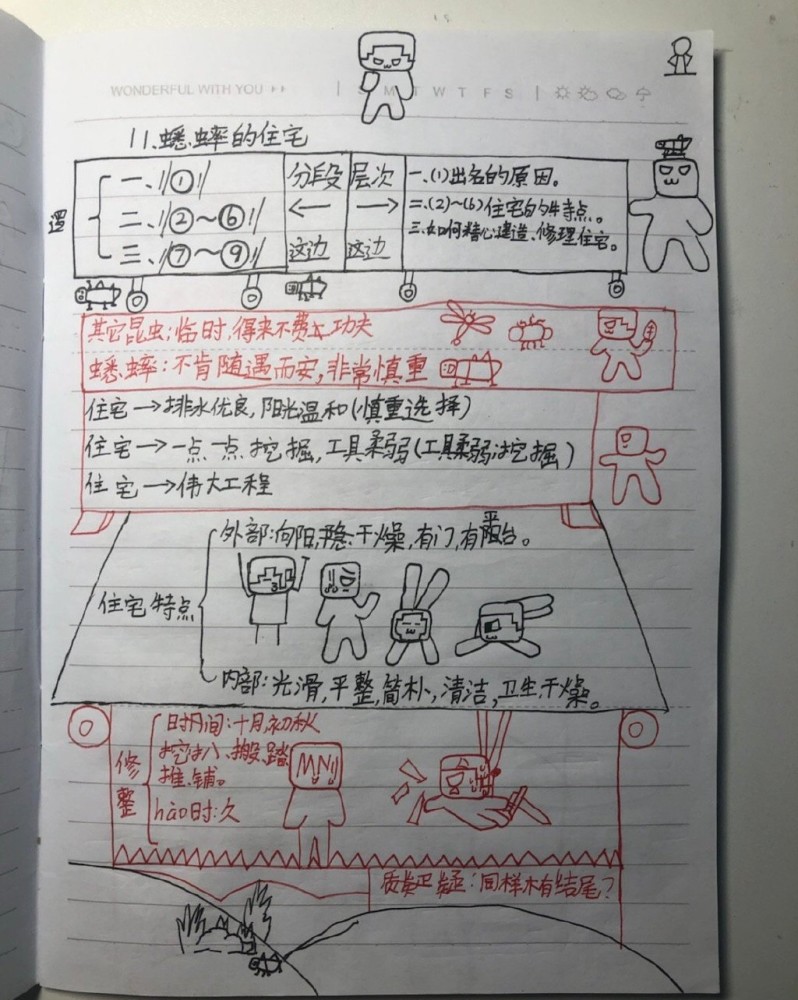 WONDERFUL WITH YOU
S M T W T F S
11、蟋蟀的住宅
一、①
二、②~⑥
三、⑦~⑨
分段 层次
← →
这边 这边
一、(1)出名的原因。
二、(2)~(6)住宅的特点。
三、如何精心建造、修理住宅。
其它昆虫:临时,得来不费功夫
蟋蟀:不肯随遇而安,非常慎重
住宅→排水优良,阳光温和(慎重选择)
住宅→一点一点挖掘,工具柔弱(工具柔弱挖掘)
住宅→伟大工程
住宅特点
外部:向阳,隐,干燥,有门,有平台。
内部:光滑,平整,简朴,清洁,卫生,干燥。
修整
时间:十月,初秋
挖、扒、搬、踏
推、铺。
hào时:久
MNIJ
质疑:同样有结尾?